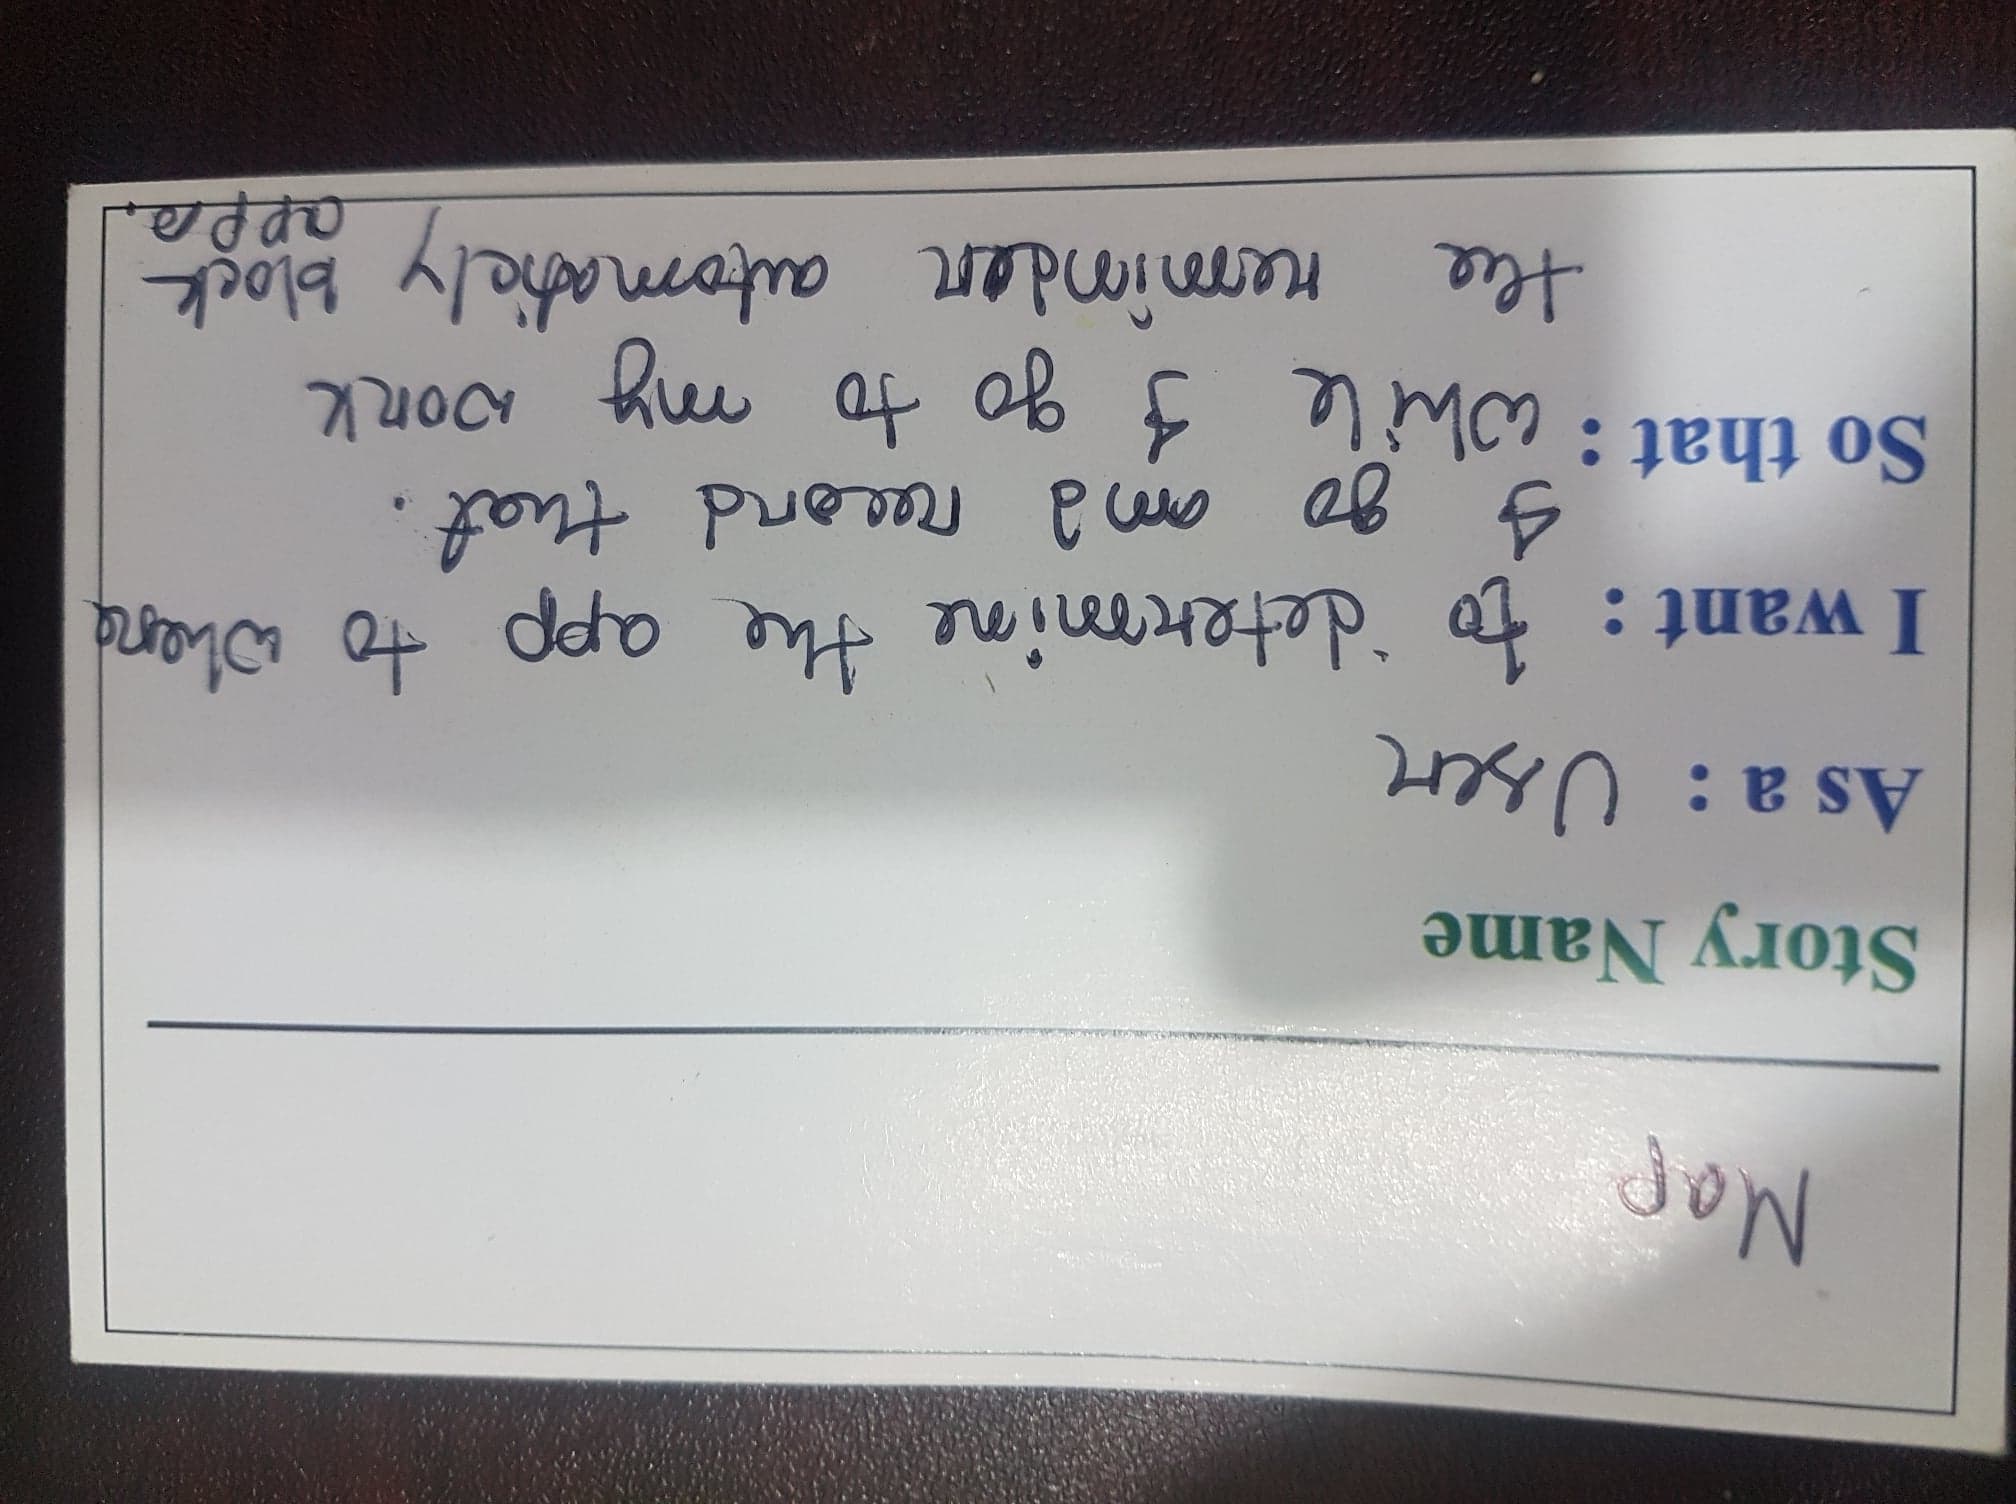 Map
Story Name
As a : User
I want : to determine the app to where
I go and record that.
So that : while I go to my work
the reminder automaticly block
apps.